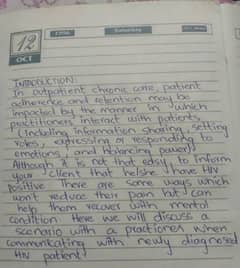 1996
Saturday
12
OCT
INTRODUCTION:
In outpatient chronic care, patient
adherence and retention may be
impacted by the manner in which
practitioners interact with patients
(including information sharing, setting
roles, expressing or responding to
emotions, and balancing power)
Although it is not that easy to inform
your client that he/she have HIV
positive there are some ways which
won't reduce their pain but can
help them recover with mental
condition. Here we will discuss a
scenario with a practioner when
communicating with newly diagnosed
HIV patient